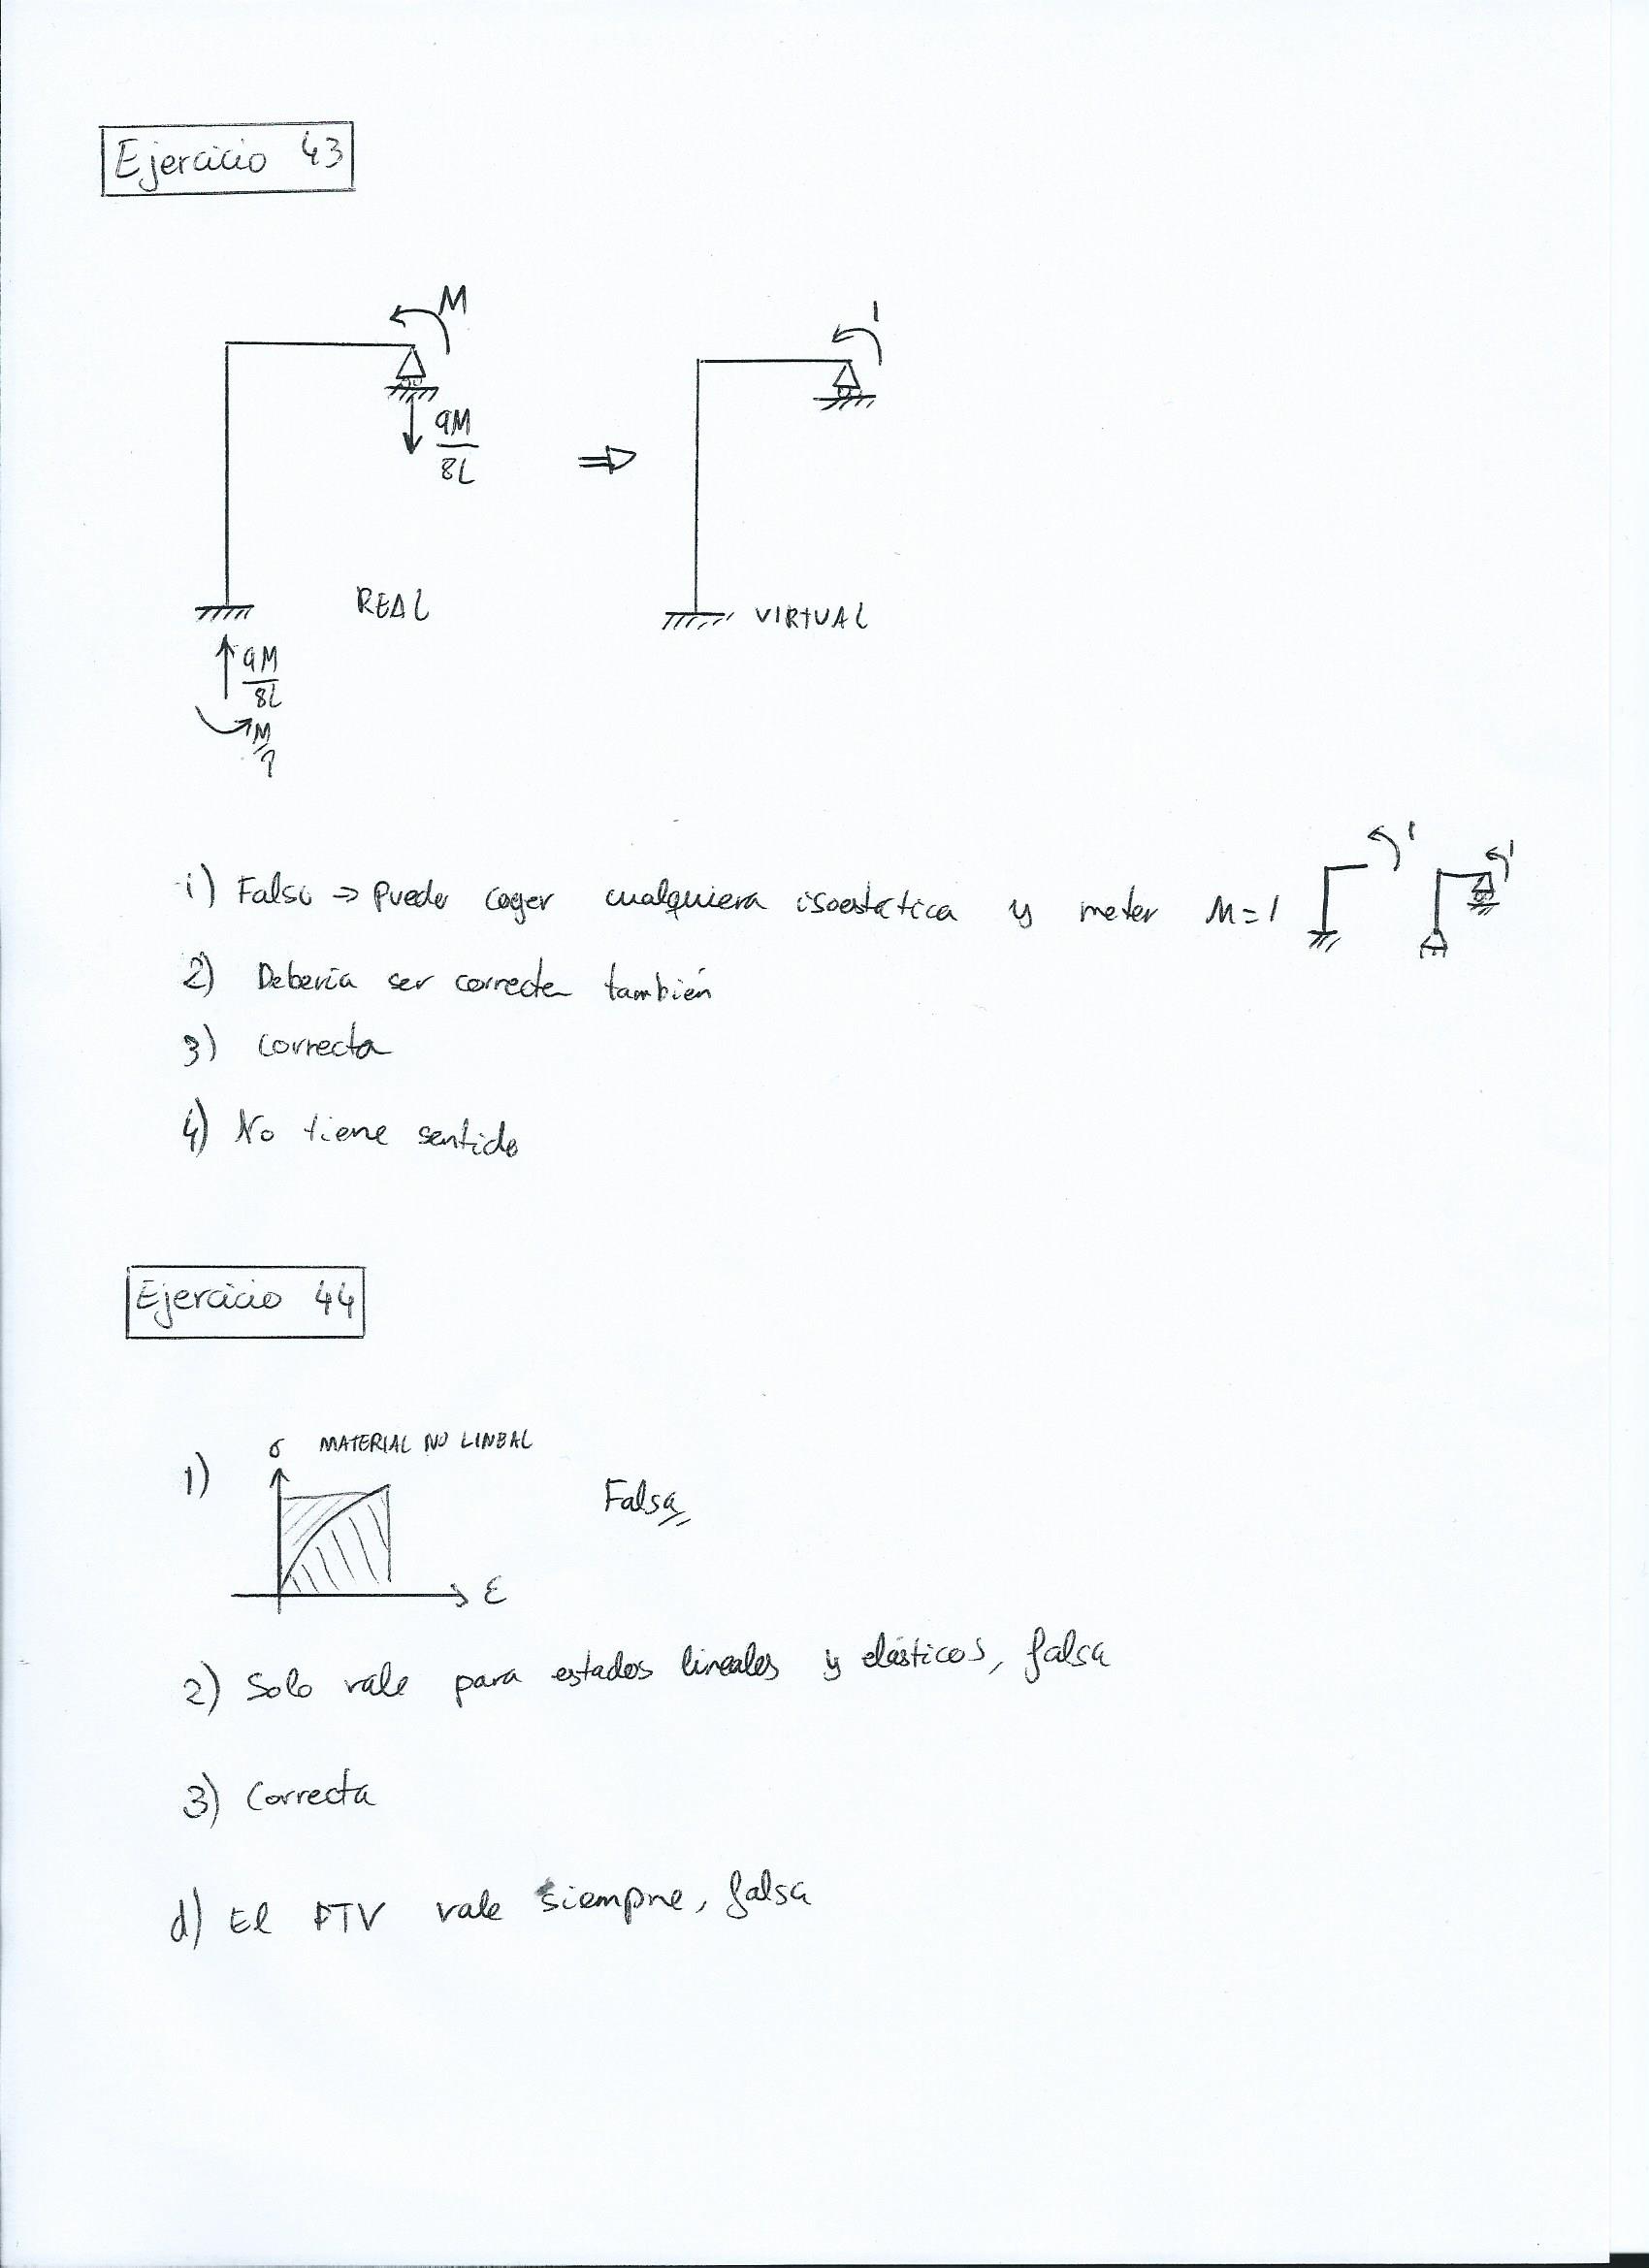 Ejercicio 43
M
1
9M
8L
REAL
VIRTUAL
9M
8L
M
1) Falso ⇒ Puedo coger cualquiera isoestática y meter M=1
1
1
2) Debería ser correcta también
3) Correcta
4) No tiene sentido
Ejercicio 44
σ MATERIAL NO LINEAL
1)
Falsa
ε
2) Solo vale para estados lineales y elásticos, falsa
3) Correcta
d) El PTV vale siempre, falsa